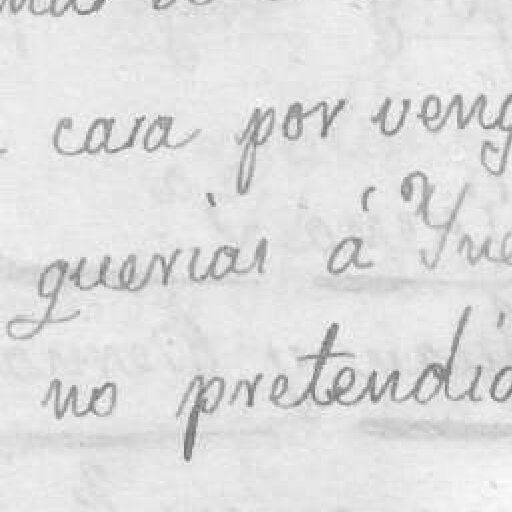 casa por veng
querias á Yne
no pretendia